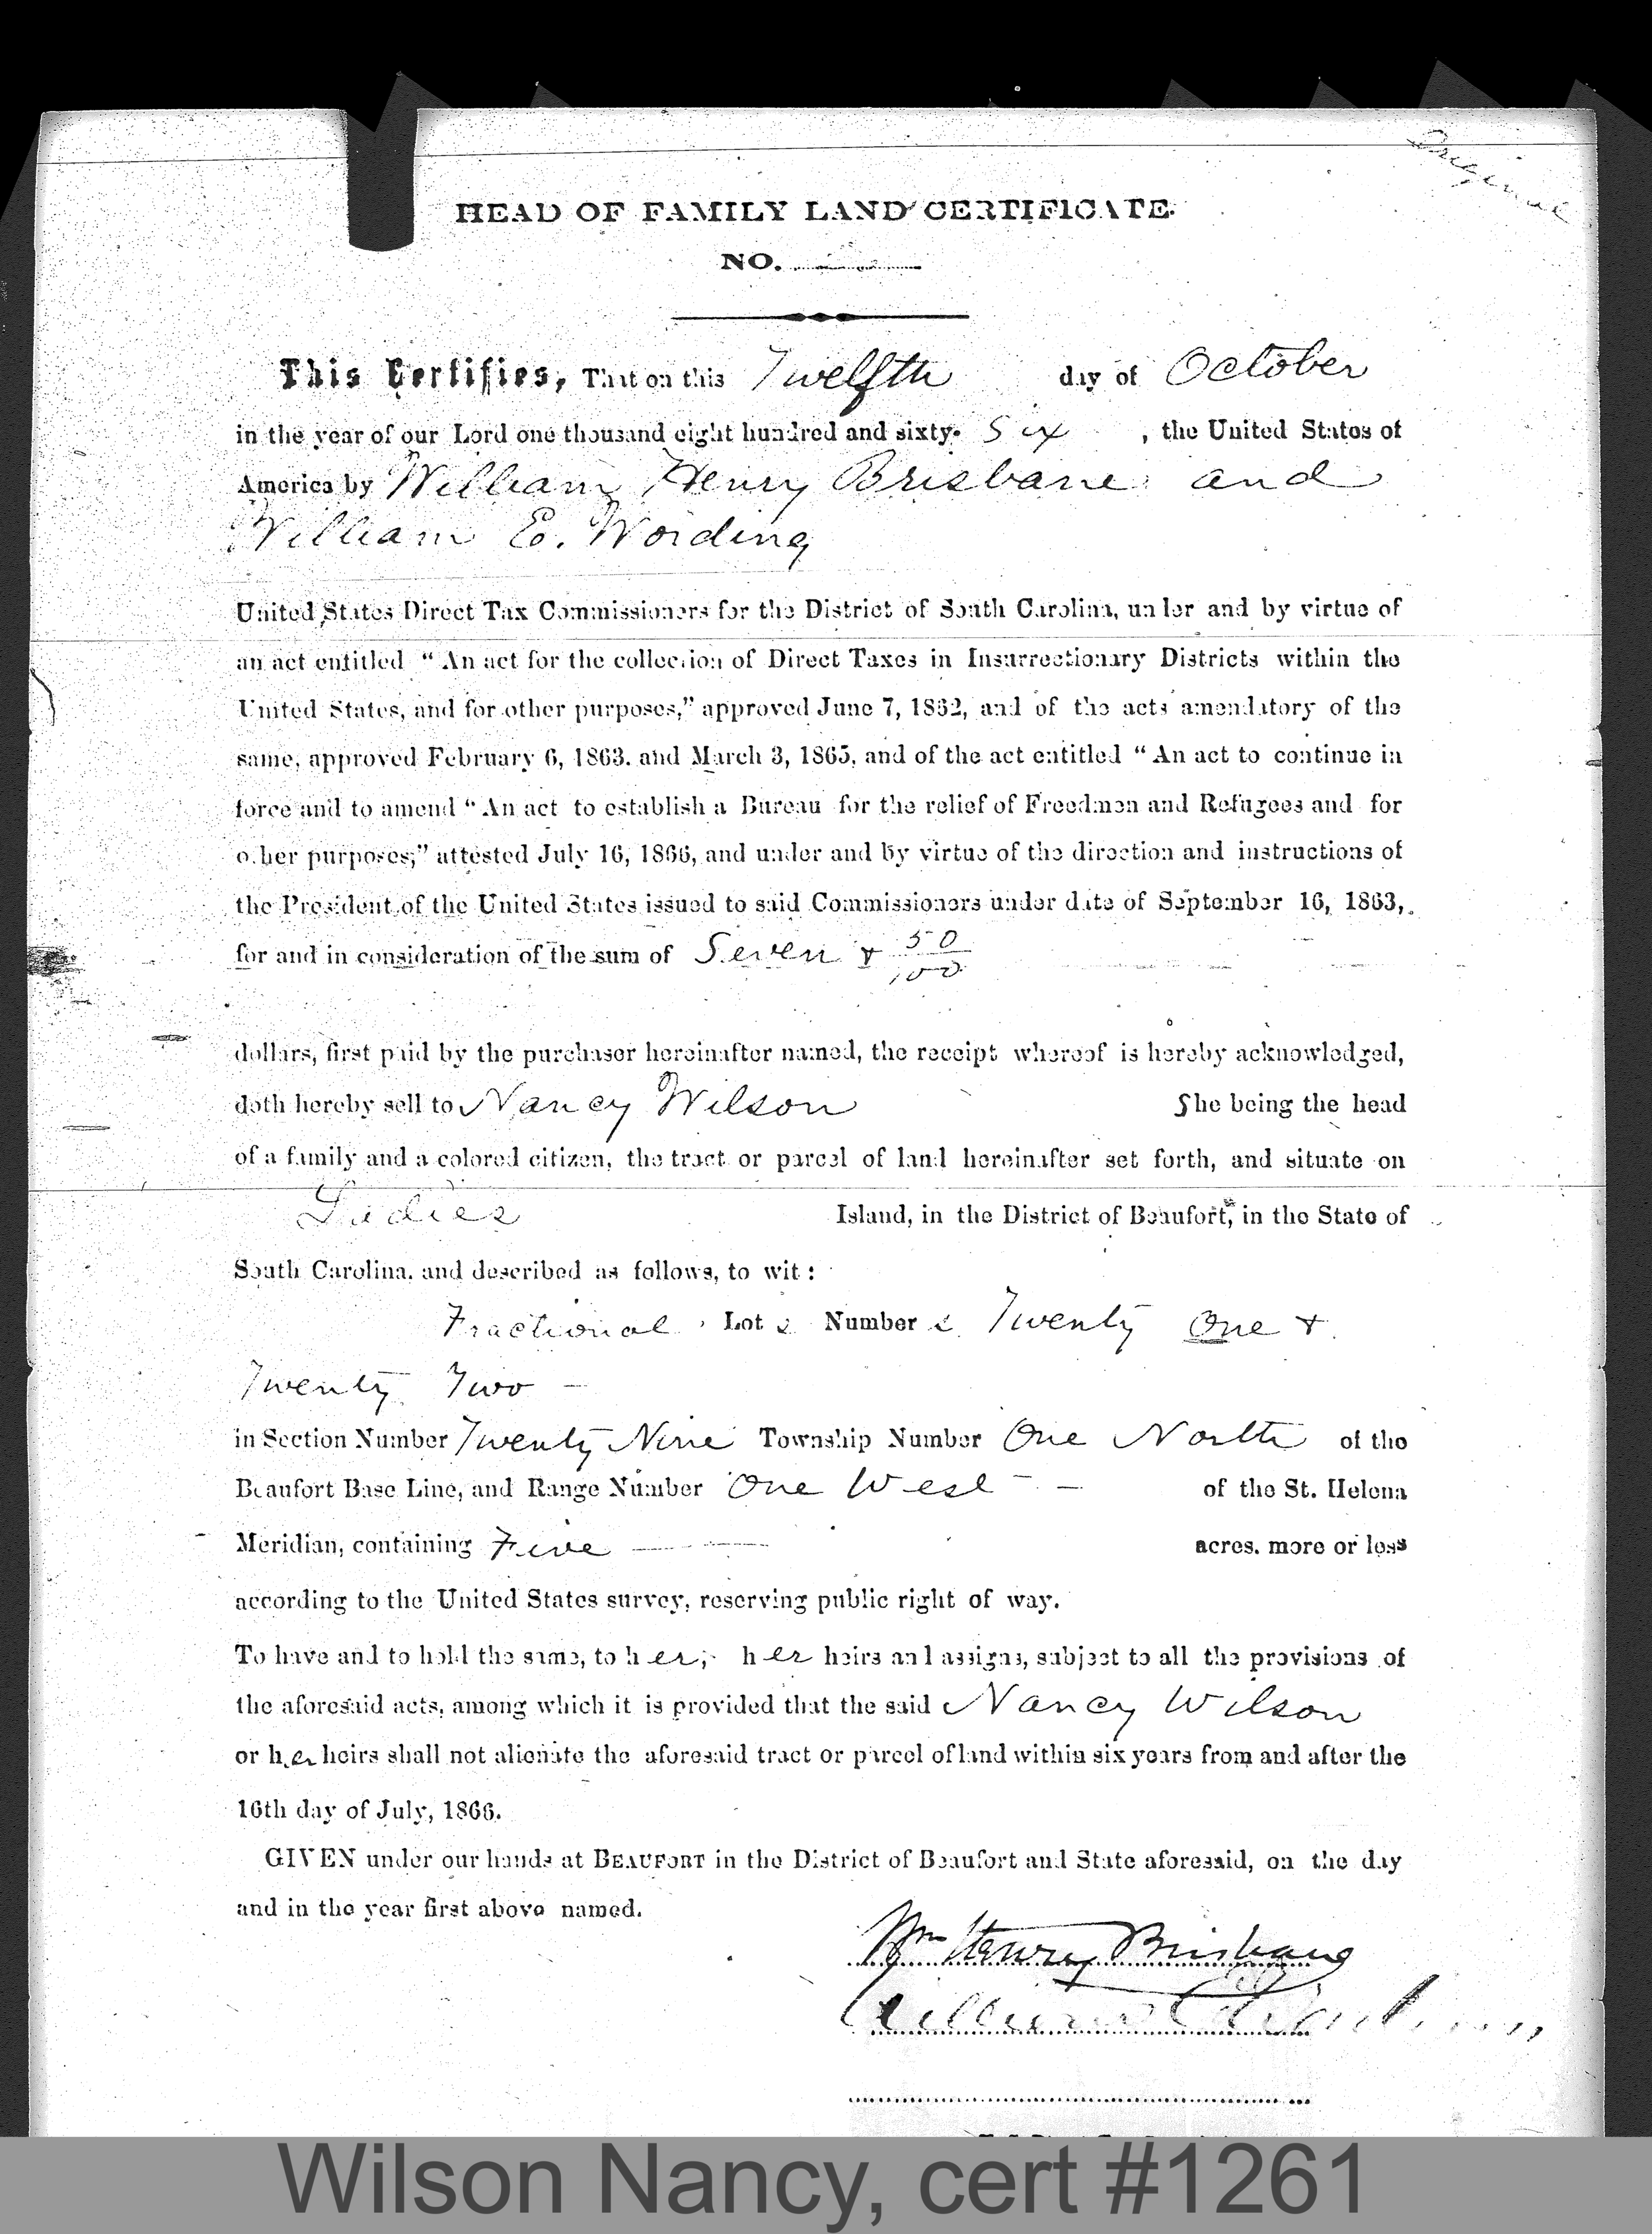 Original
HEAD OF FAMILY LAND CERTIFICATE.
NO.
This Certifies, That on this Twelfth day of October
in the year of our Lord one thousand eight hundred and sixty-Six , the United States of
America by William Henry Brisbane and
William E. Wording
United States Direct Tax Commissioners for the District of South Carolina, under and by virtue of
an act entitled "An act for the collection of Direct Taxes in Insurrectionary Districts within the
United States, and for other purposes," approved June 7, 1862, and of the acts amendatory of the
same, approved February 6, 1863. and March 3, 1865, and of the act entitled "An act to continue in
force and to amend "An act to establish a Bureau for the relief of Freedmen and Refugees and for
other purposes," attested July 16, 1866, and under and by virtue of the direction and instructions of
the President of the United States issued to said Commissioners under date of September 16, 1863,
for and in consideration of the sum of Seven & 50/100
dollars, first paid by the purchaser hereinafter named, the receipt whereof is hereby acknowledged,
doth hereby sell to Nancy Wilson She being the head
of a family and a colored citizen, the tract or parcel of land hereinafter set forth, and situate on
Ladies Island, in the District of Beaufort, in the State of
South Carolina, and described as follows, to wit:
Fractional Lot s Number s Twenty One &
Twenty Two –
in Section Number Twenty Nine Township Number One North of the
Beaufort Base Line, and Range Number One West – – of the St. Helena
Meridian, containing Five acres, more or less
according to the United States survey, reserving public right of way.
To have and to hold the same, to her, her heirs and assigns, subject to all the provisions of
the aforesaid acts, among which it is provided that the said Nancy Wilson
or her heirs shall not alienate the aforesaid tract or parcel of land within six years from and after the
16th day of July, 1866.
GIVEN under our hands at BEAUFORT in the District of Beaufort and State aforesaid, on the day
and in the year first above named.
Wm Henry Brisbane
William E. Wording
Wilson Nancy, cert #1261